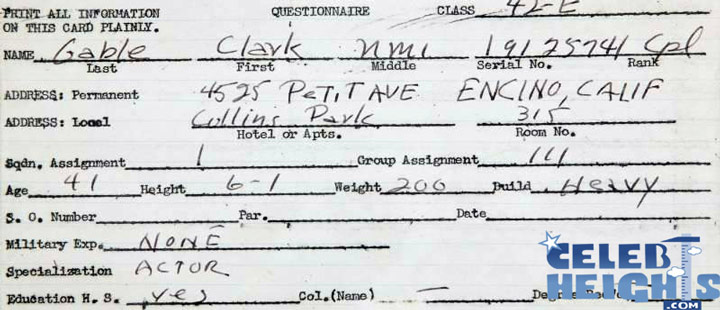 PRINT ALL INFORMATION QUESTIONNAIRE CLASS 42-E
ON THIS CARD PLAINLY.
NAME Gable Clark nmi 19125741 Cpl
Last First Middle Serial No. Rank
ADDRESS: Permanent 4525 PETIT AVE ENCINO, CALIF
ADDRESS: Local Collins Park 315
Hotel or Apts. Room No.
Sqdn. Assignment 1 Group Assignment III
Age 41 Height 6-1 Weight 200 Build Heavy
S. O. Number Par. Date
Military Exp. NONE
Specialization ACTOR
Education H. S. yes Col. (Name) — Degree
CELEB HEIGHTS.COM